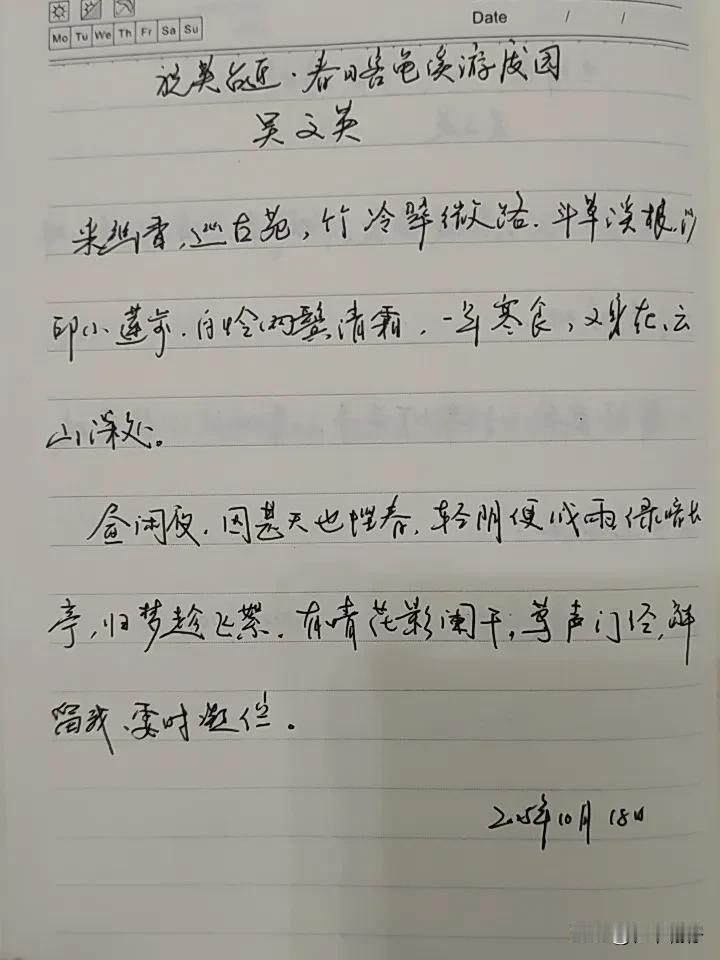 Mo Tu We Th Fr Sa Su
Date / /
祝英台近·春日客龟溪游废园
吴文英
采幽香，巡古苑，竹冷翠微路．斗草溪根，沙
印小莲步．自怜两鬓清霜，一年寒食，又身在，云
山深处。
昼闲度．因甚天也悭春，轻阴便成雨绿暗长
亭，归梦趁飞絮．有情花影阑干，莺声门径，解
留我．霎时凝伫．
2025年10月18日